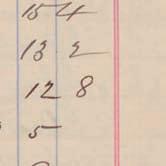 15 4
13 2
12 8
5